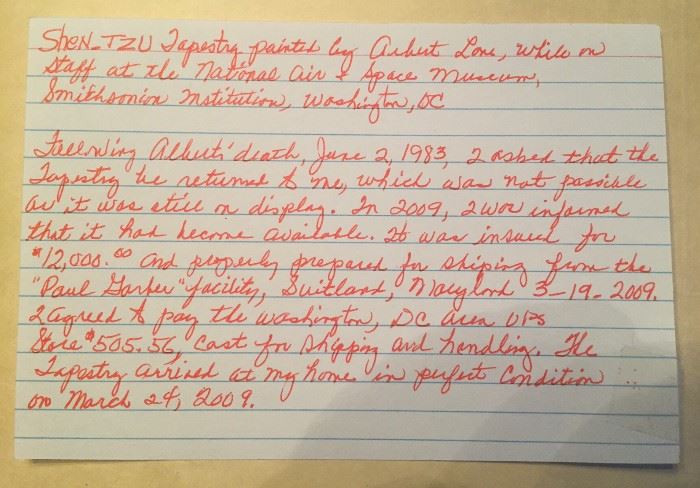 Shen-TZU Tapestry painted by Albert Lone, while on
staff at the National Air & Space Museum,
Smithsonian Institution, Washington, DC
Following Albert's death, June 2, 1983, I asked that the
Tapestry be returned to me, which was not possible
as it was still on display. In 2009, I was informed
that it had become available. It was insured for
$12,000.00 and properly prepared for shiping from the
"Paul Garber" facility, Suitland, Maryland 3-19-2009.
I agreed to pay the Washington, DC area UPS
Store $505.56, cost for shipping and handling. The
Tapestry arrived at my home in perfect condition
on March 24, 2009.